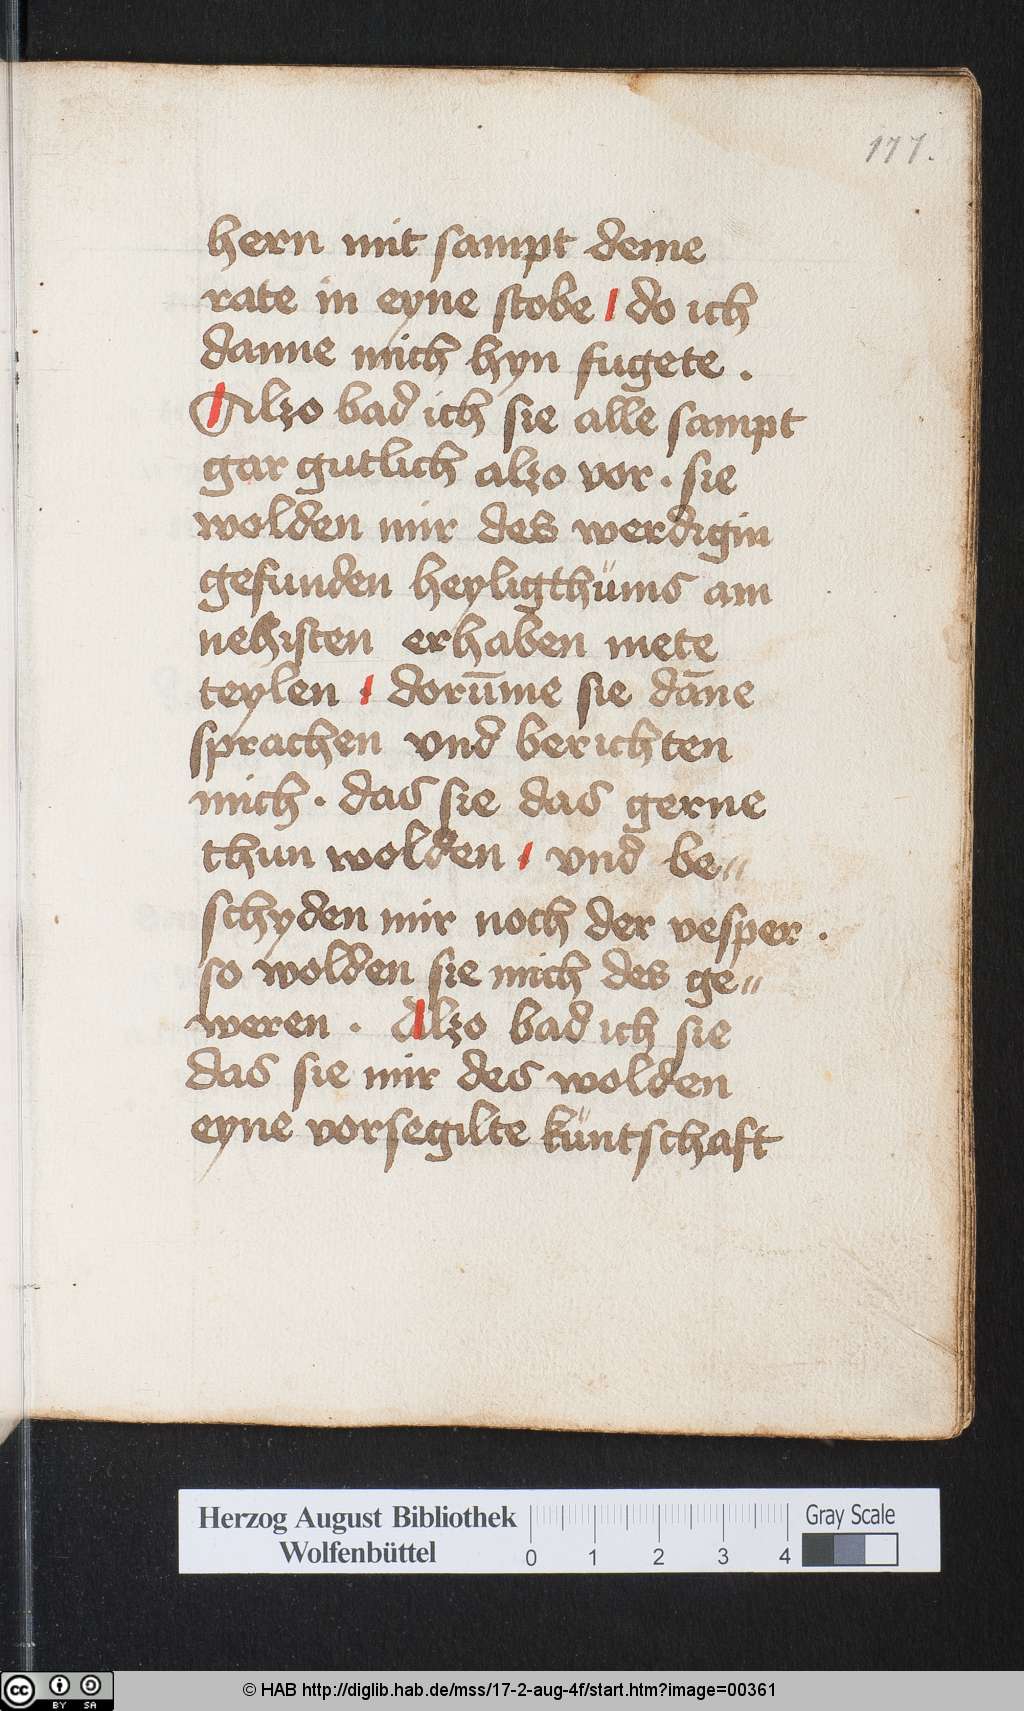 177.
hern mit sampt deme
rate in eyne stobe / do ich
danne mich hyn fugete .
Alzo bad ich sie alle sampt
gar gutlich alzo vor . sie
wolden mir des werdigin
gefunden heyligthüms am
nehisten erhaben mete
teylen / dorūme sie dāne
sprachen vnd berichten
mich . das sie das gerne
thun wolden / vnd be〃
schyden mir noch der vesper .
so wolden sie mich des ge〃
weren . Alzo bad ich sie
das sie mir des wolden
eyne vorsegilte küntschaft
Herzog August Bibliothek
Wolfenbüttel
0 1 2 3 4
Gray Scale
cc BY SA
© HAB http://diglib.hab.de/mss/17-2-aug-4f/start.htm?image=00361